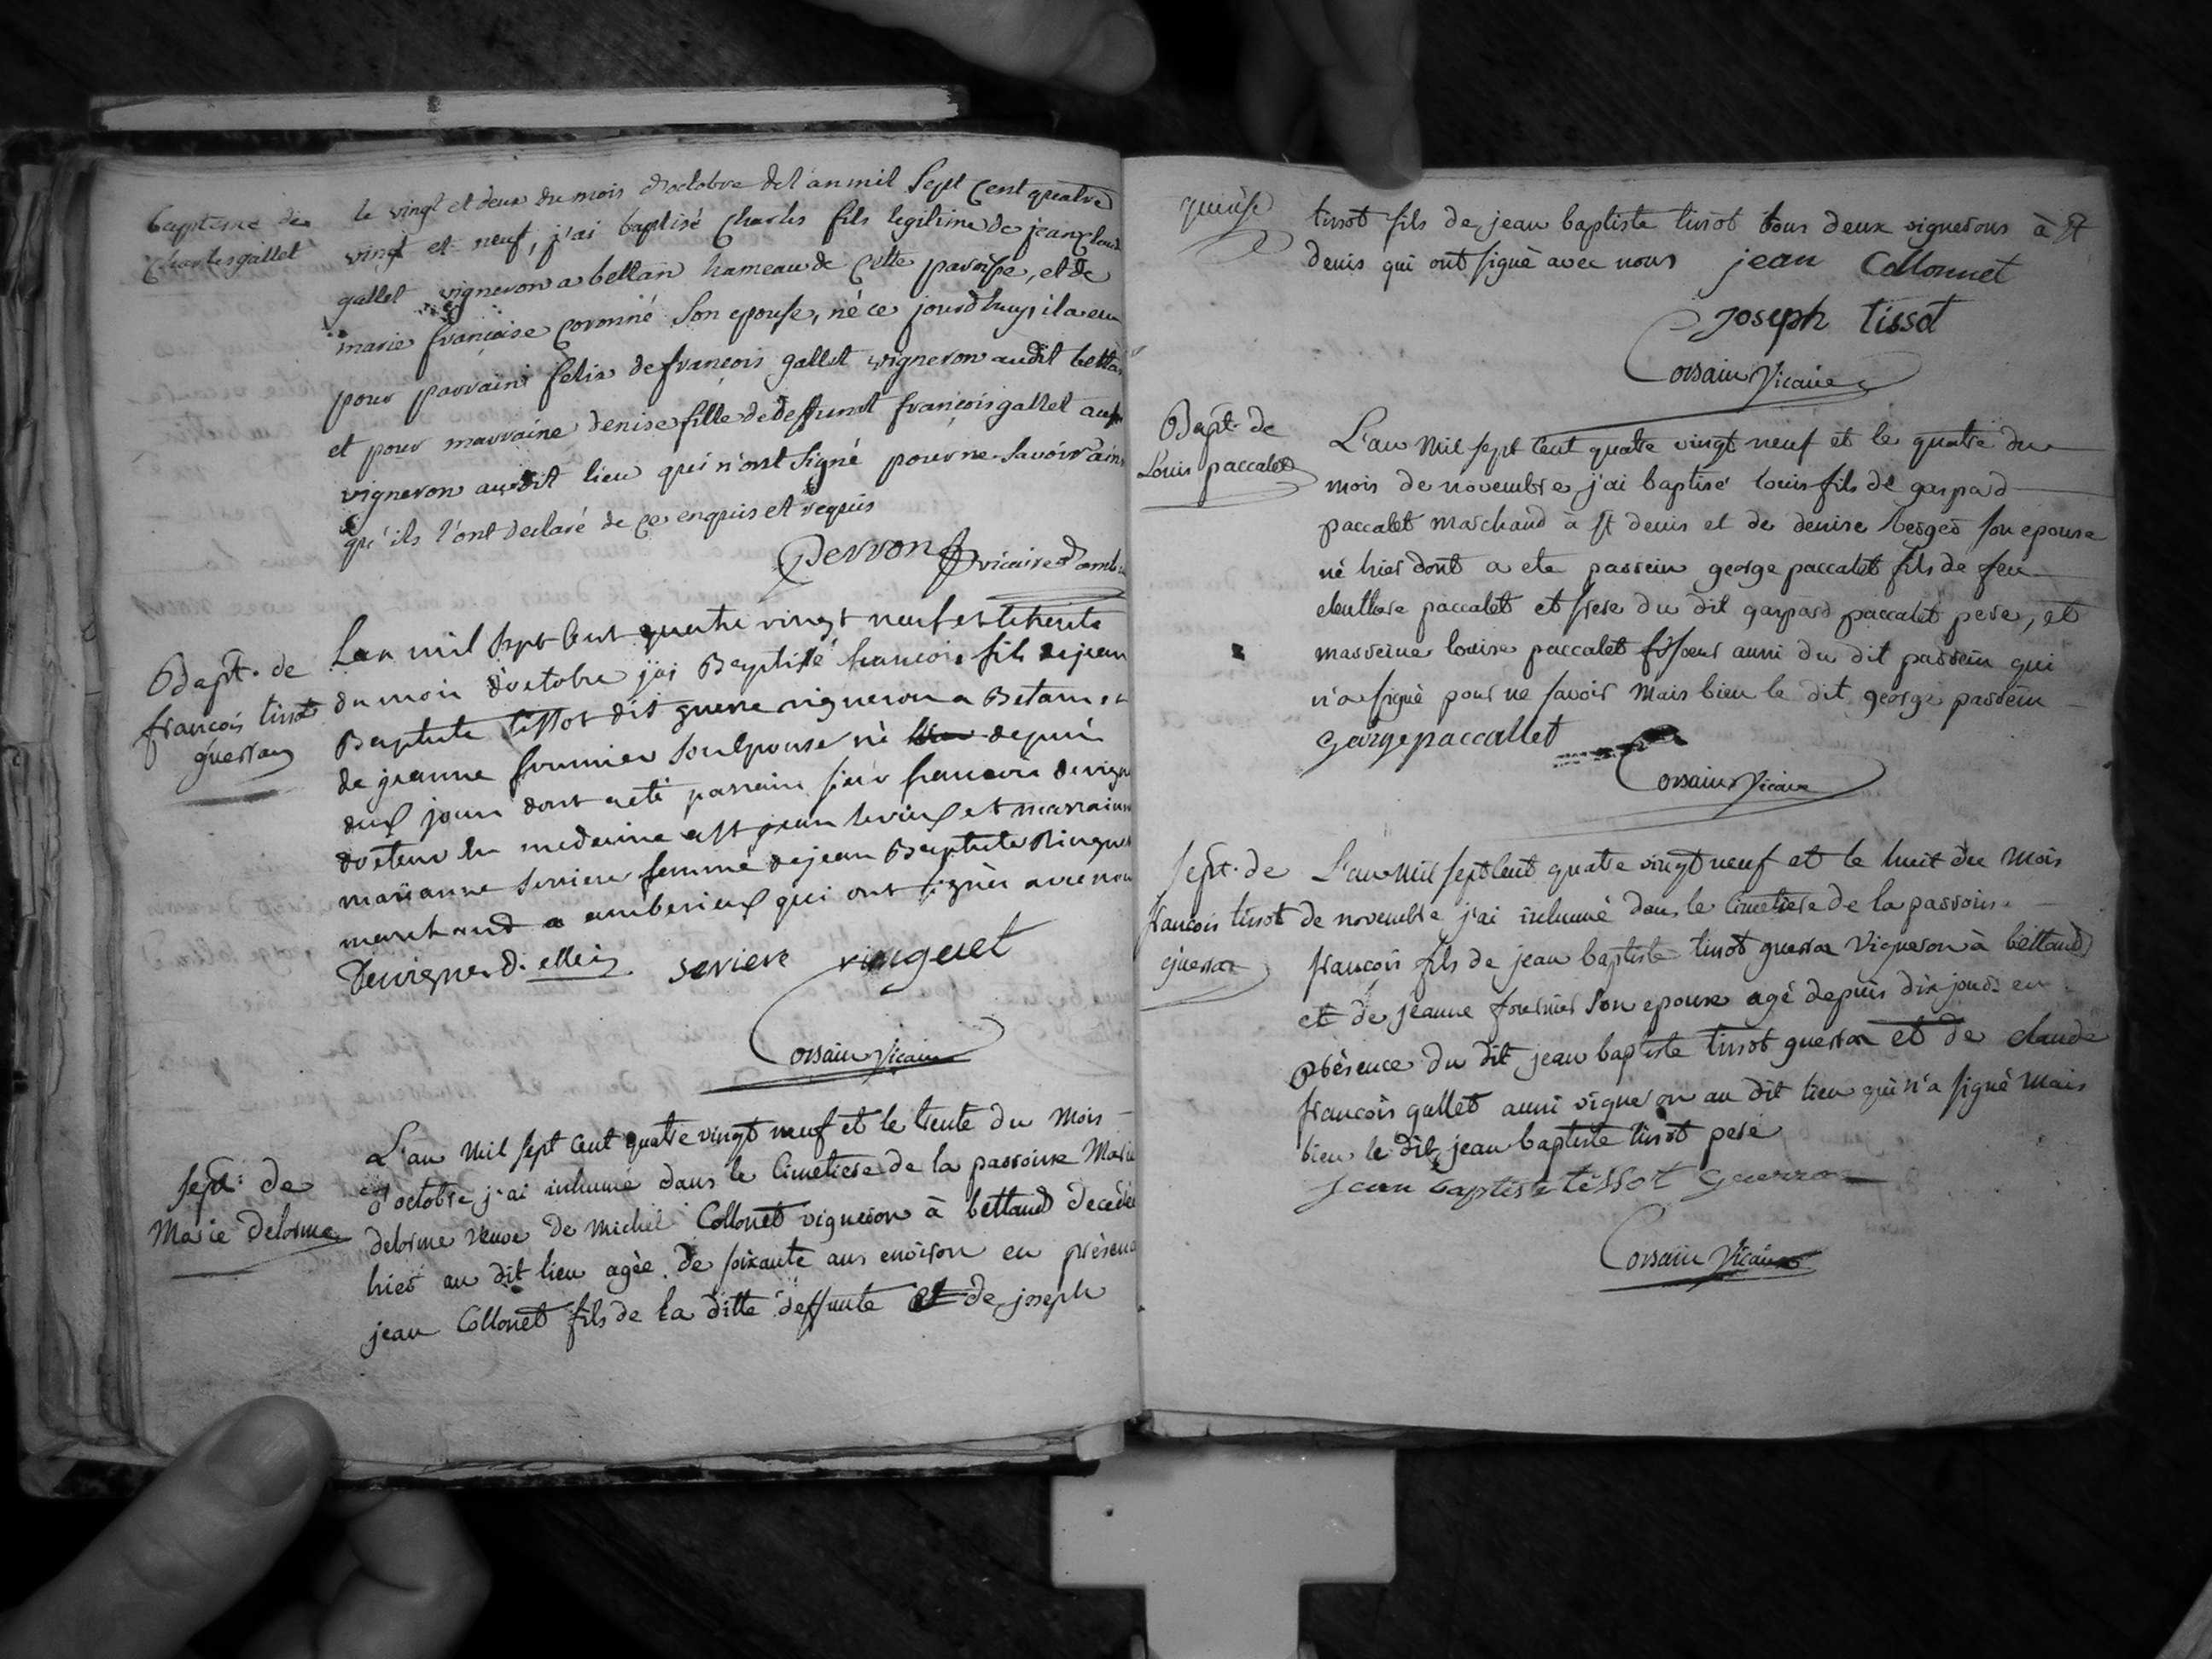 baptesme de
Charles gallet
le vingt et deux du mois d'octobre de l'an mil Sept Cent quatre
vingt et neuf, j'ai baptisé Charles fils legitime de jean Claude
gallet vigneron a bettan hameau de Cette paroisse, et de
marie françoise Son epouse, né ce jourdhuy, il a eu
pour parrain felix de françois gallet vigneron audit betta
et pour marraine denise fille de deffunct françois gallet
vigneron audit lieu qui n'ont Signé pour ne Savoir ain
qu'ils l'ont declaré de ce enquis et requis
perron vicaire d'amb
Bapt. de
francois tissot
guerraz
Lan mil sept Cent quatre vingt neuf et le trente
du mois doctobre j'ai Baptisé francois fils de jean
Baptiste tissot dit guerre vigneron a Betam et
de jeanne fournier son epouse né depuis
deux jours dont a eté parrain sieur francois devigne
docteur en medecine et marraine
marianne serviere femme de jean Baptiste Ringuet
marchand a amberieux qui ont signés avec nou
Devigne d. seriere ringuet
Corsain Vicaire
Sept. de
Marie Delorme
L'an Mil sept Cent quatre vingt neuf et le trente du Mois
d'octobre j'ai inhumé dans le Cimetiere de la parroisse Marie
delorme Veuve de Michel Collonet vigneron à bettand decedée
hier au dit lieu agée de soixante ans environ en présence
jean Collonet fils de la ditte deffunte et de joseph
tissot fils de jean baptiste tissot tous deux vignerons à St
denis qui ont signé avec nous jean Collonnet
Joseph tissot
Corsain Vicaire
Bapt. de
Louis paccalet
L'an Mil sept Cent quatre vingt neuf et le quatre du
mois de novembre j'ai baptisé louis fils de gaspard
paccalet marchand à St denis et de denise berger son epouse
né hier dont a ete parrein george paccalet fils de feu
eleuthere paccalet et frere du dit gaspard paccalet pere, et
marreine louise paccalet soeur aussi du dit parrein qui
n'a signé pour ne savoir Mais bien le dit george parrein
George paccallet
Corsain Vicaire
Sept. de
francois tissot
guerraz
L'an Mil sept Cent quatre vingt neuf et le huit du Mois
de novembre j'ai inhumé dans le Cimetiere de la parroisse
francois fils de jean baptiste tissot guerraz Vigneron à bettand
et de jeanne fournier son epouse agé depuis dix jours en
présence du dit jean baptiste tissot guerraz et de claude
francois gallet aussi vigneron au dit lieu qui n'a signé Mais
bien le dit jean baptiste tissot pere
jean baptiste tissot Guerraz
Corsain Vicaire